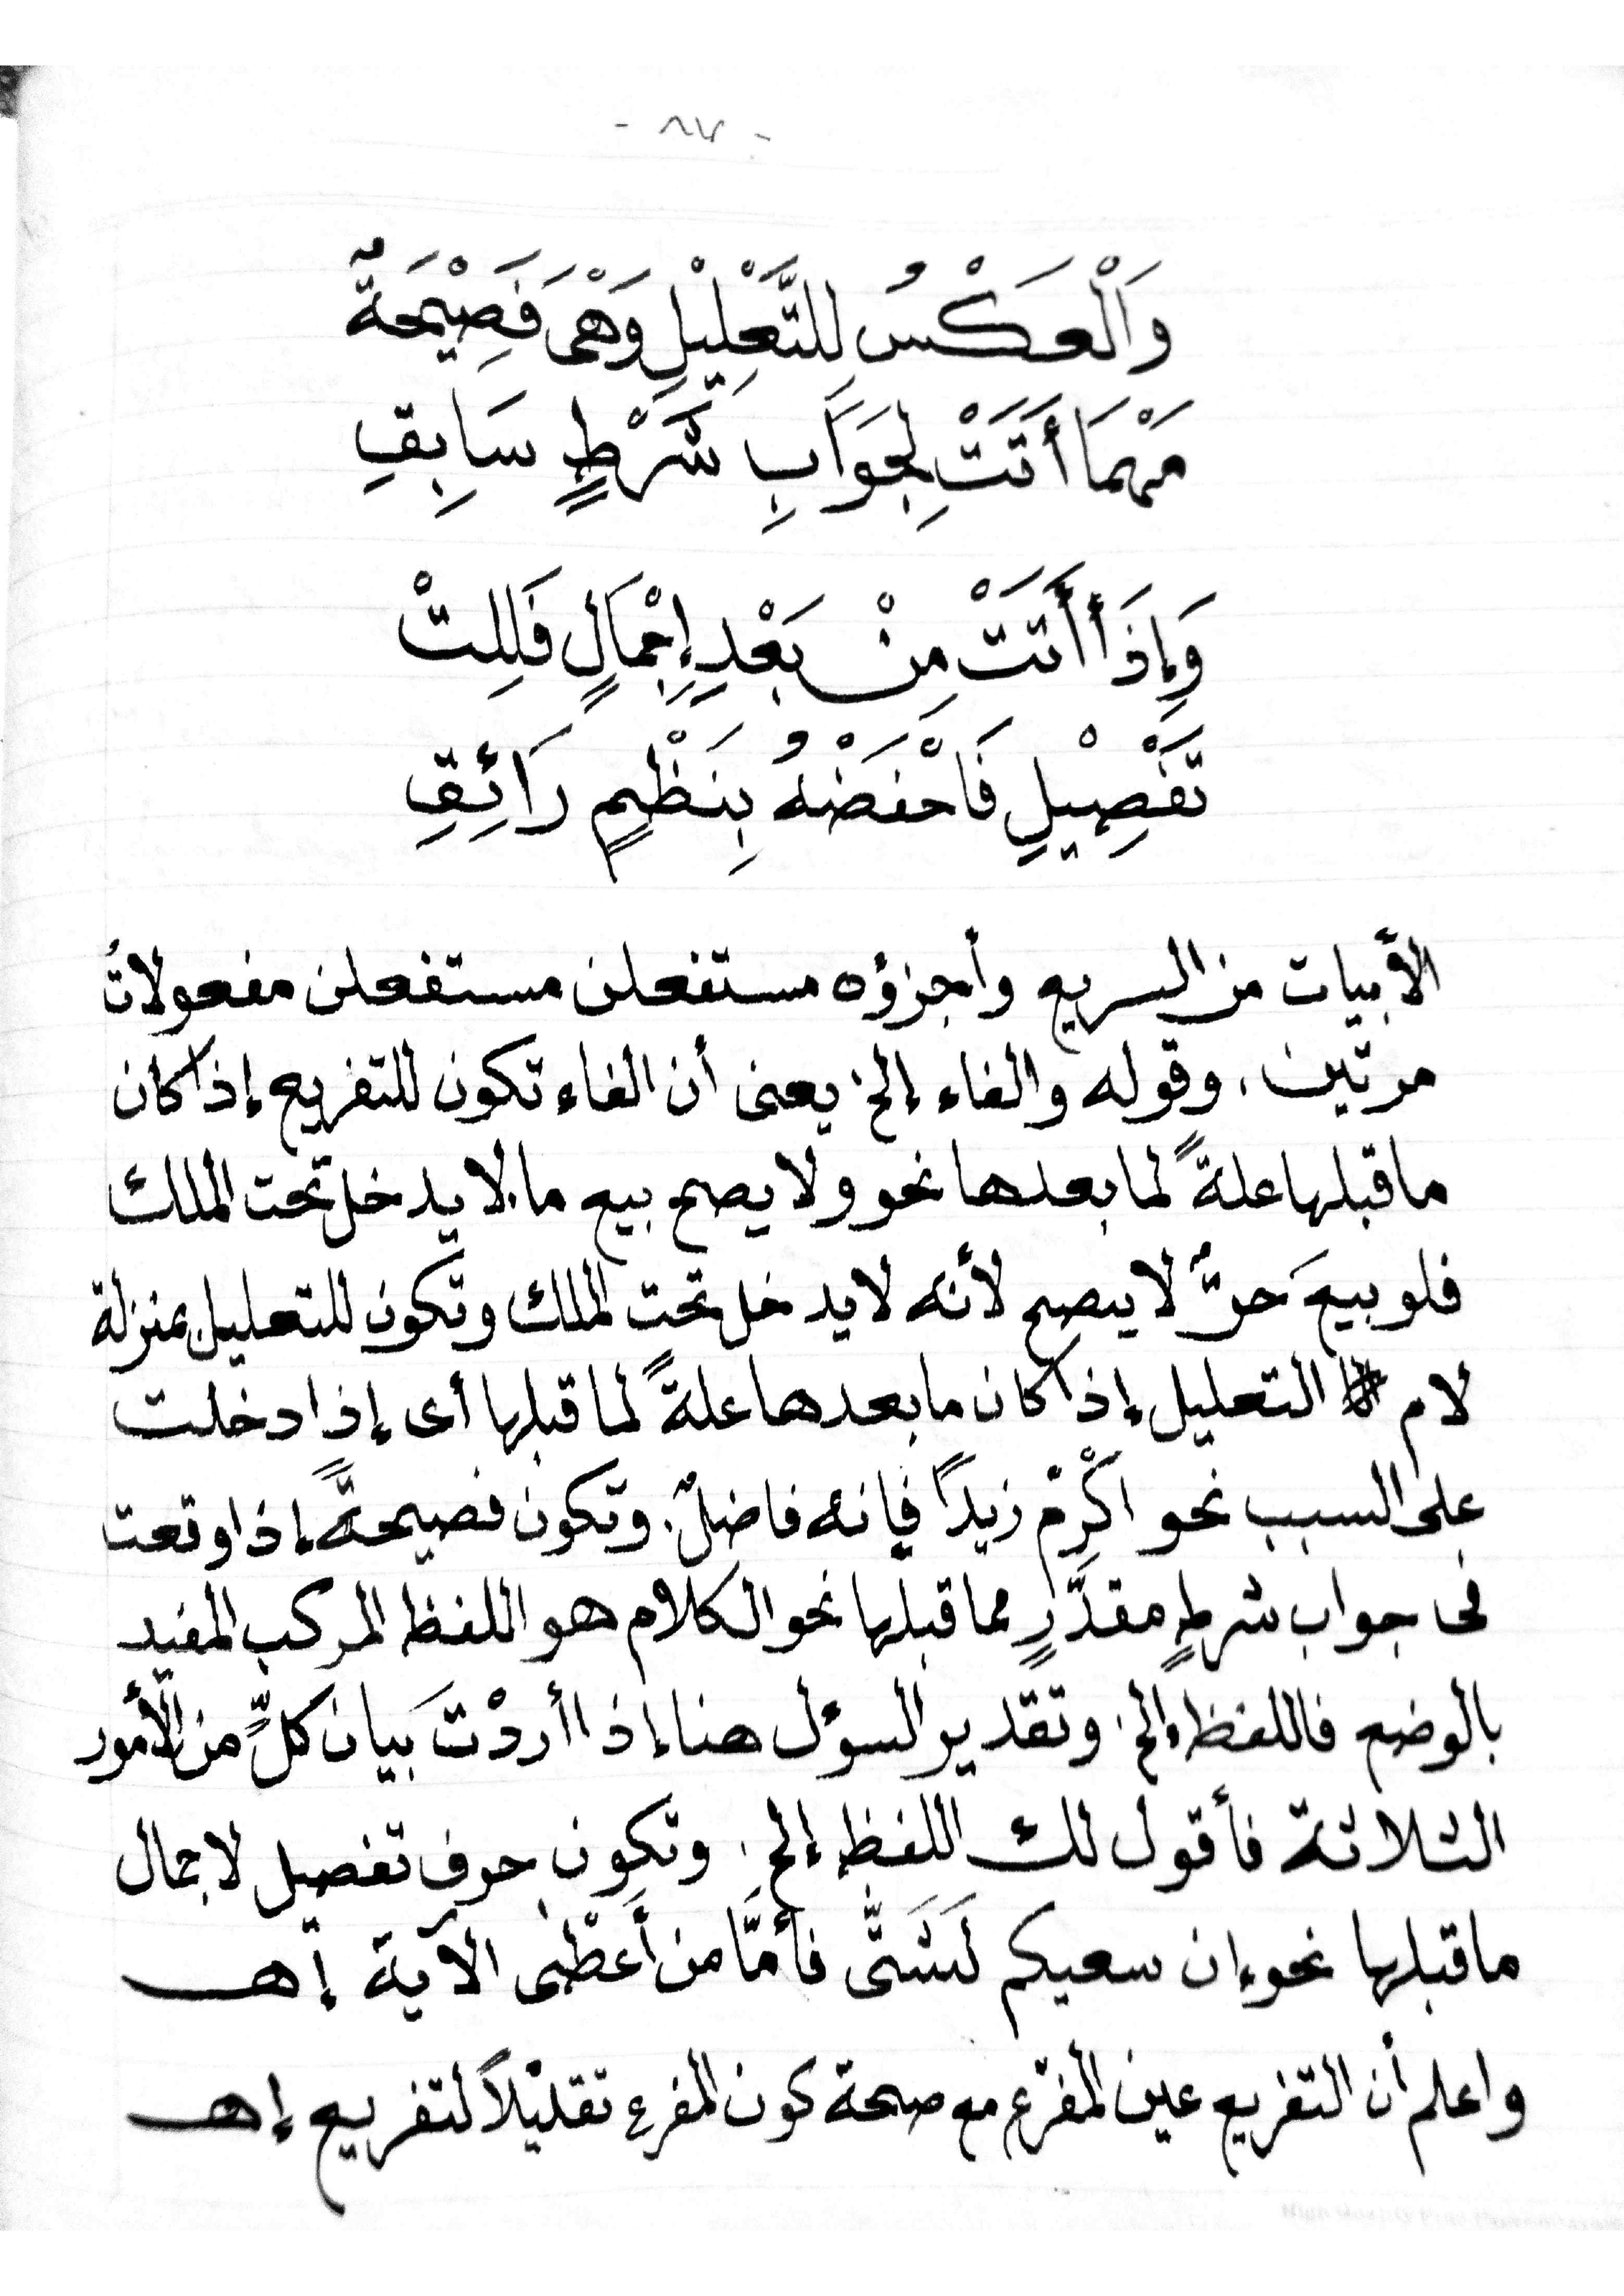 - ٨٧ -
وَالْعَكْسُ لِلتَّعْلِيْلِ وَهْىَ فَصِيْحَةٌ
مَهْمَا أَتَتْ لِجَوَابِ شَرْطٍ سَابِقِ
وَإِذَا أَتَتْ مِنْ بَعْدِ إِجْمَالٍ فَلِلتْ
تَفْصِيْلِ فَاحْفَضْهُ بِنَظْمٍ رَائِقِ
الأبيات من السريع وأجزؤه مستفعلن مستفعلن مفعولاتُ
مرتين . وقوله والفاء إلخ يعنى أن الفاء تكون للتفريع إذا كان
ما قبلها علةً لما بعدها نحو ولا يصح بيع ما لا يدخل تحت الملك
فلو بيعَ حرٌّ لا يصح لأنه لا يدخل تحت الملك وتكون للتعليل بمنزلة
لام التعليل إذا كان ما بعدها علةً لما قبلها أى إذا دخلت
على السبب نحو اكْرِمْ زيدًا فإنه فاضلٌ . وتكون فصيحةً إذا وقعت
فى جواب شرطٍ مقدَّرٍ مما قبلها نحو الكلام هو اللفظ المركب المفيد
بالوضع فاللفظ إلخ . وتقدير السؤل هنا إذا أردْتَ بيان كلٍّ من الأمور
الثلاثة فأقول لك اللفظ إلخ . وتكون حرف تفصيل لاجمال
ما قبلها نحو إن سعيكم لَشَتَّى فأمَّا من أَعْطَى الآية إهـ
واعلم أن التفريع عين المفرّع مع صحة كون المفرع تقليْلاً لتفريع إهـ